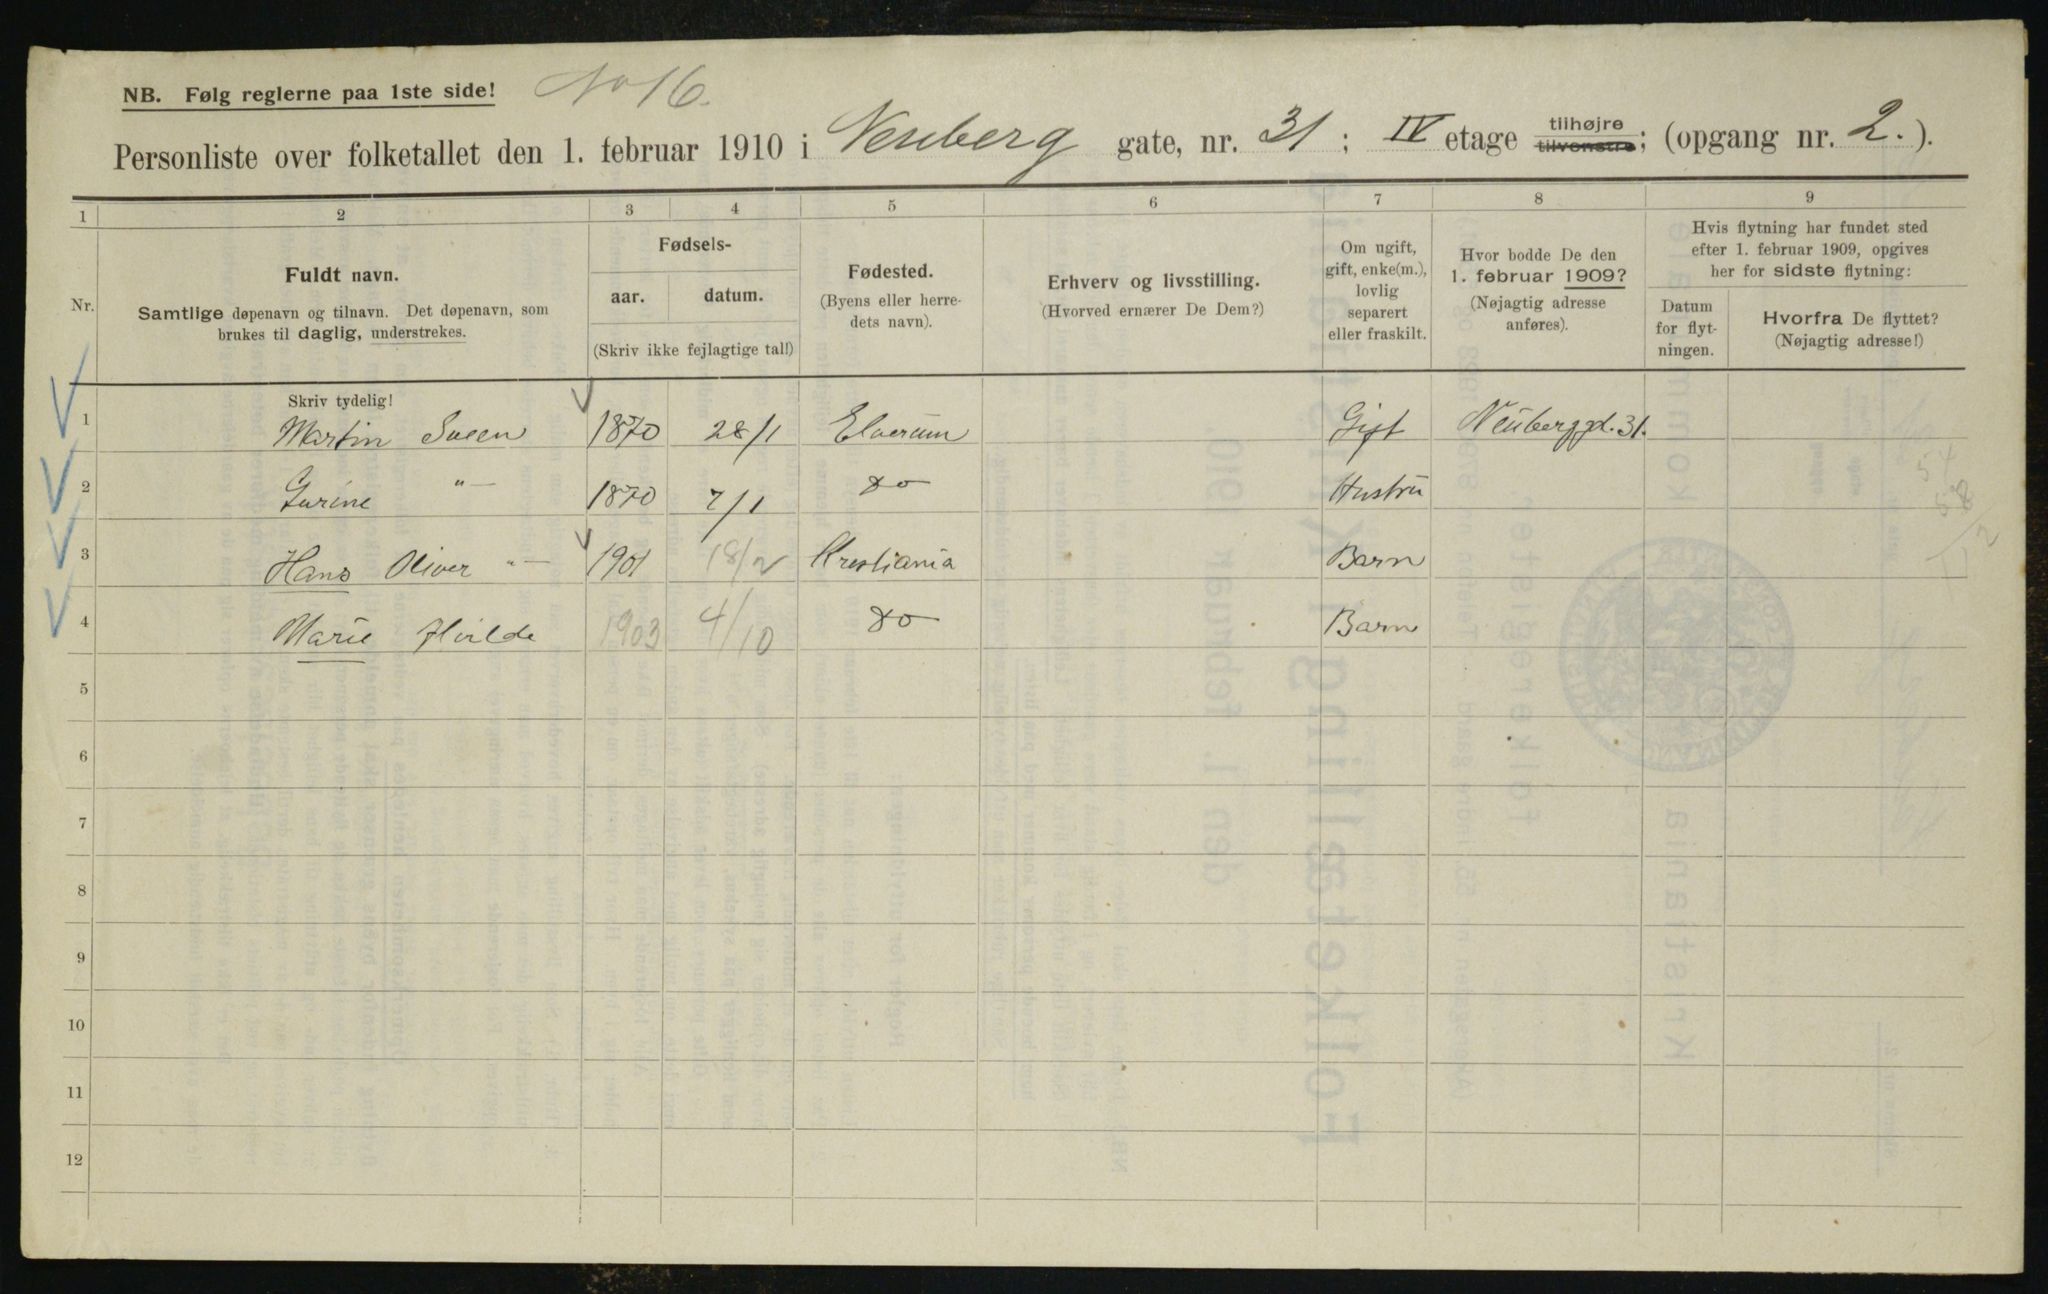 NB. Følg reglerne paa 1ste side!
No 16.
Personliste over folketallet den 1. februar 1910 i Neuberg gate, nr. 31; IV etage tilhøjre tilvenstre; (opgang nr. 2.).
1 2 3 4 5 6 7 8 9
Nr.
Fuldt navn.
Samtlige døpenavn og tilnavn. Det døpenavn, som
brukes til daglig, understrekes.
Fødsels-
aar. datum.
(Skriv ikke fejlagtige tal!)
Fødested.
(Byens eller herre-
dets navn).
Erhverv og livsstilling.
(Hvorved ernærer De Dem?)
Om ugift,
gift, enke(m.),
lovlig
separert
eller fraskilt.
Hvor bodde De den
1. februar 1909?
(Nøjagtig adresse
anføres).
Hvis flytning har fundet sted
efter 1. februar 1909, opgives
her for sidste flytning:
Datum
for flyt-
ningen.
Hvorfra De flyttet?
(Nøjagtig adresse!)
Skriv tydelig!
1 Martin Sveen 1870 28/1 Elverum Gift Neuberggd. 31.
2 Gurine -"- 1870 7/1 do Hustru
3 Hans Oliver -"- 1901 18/2 Kristiania Barn
4 Marie Hvilde 1903 4/10 do Barn
5
6
7
8
9
10
11
12